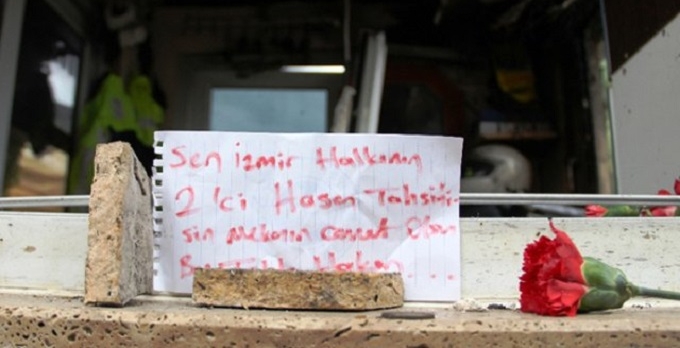 Sen izmir Halkının
2'ci Hasan Tahsini-
sin mekanın cennet Olsun